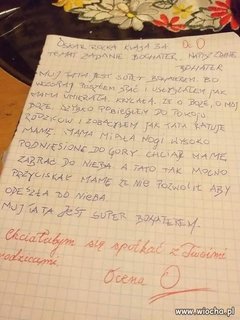 OSKAR ROCKA KLASA 3A Dn. O
TEMAT ZADANIE BOHATER, NADZYCZAJNE
BOHATER
MUJ TATA JEST SUPER BOHATEREM. BO
WCZORAJ POSZŁEM SPAĆ I USŁYSZAŁEM JAK
MAMA UMIERAŁA. KRICAŁA, ŻE O BOŻE, O MÓJ
BOŻE. SZYBKO POBIEGŁEM DO POKOJU
RODZICÓW I ZOBACZYŁEM JAK TATA RATUJE
MAMĘ. MAMA MIAŁA NOGI WYSOKO
PODNIESIONE DO GÓRY. CHCIAŁ MAMĘ
ZABRAĆ DO NIEBA. A TATO TAK MOCNO
PRZYCISKAŁ MAMĘ ŻE NIE POZWOLIŁ ABY
ODESZŁA DO NIEBA.
MUJ TATA JEST SUPER BOHATEREM.
Chciałabym się spotkać z Twoimi
rodzicami
Ocena
www.wiocha.pl